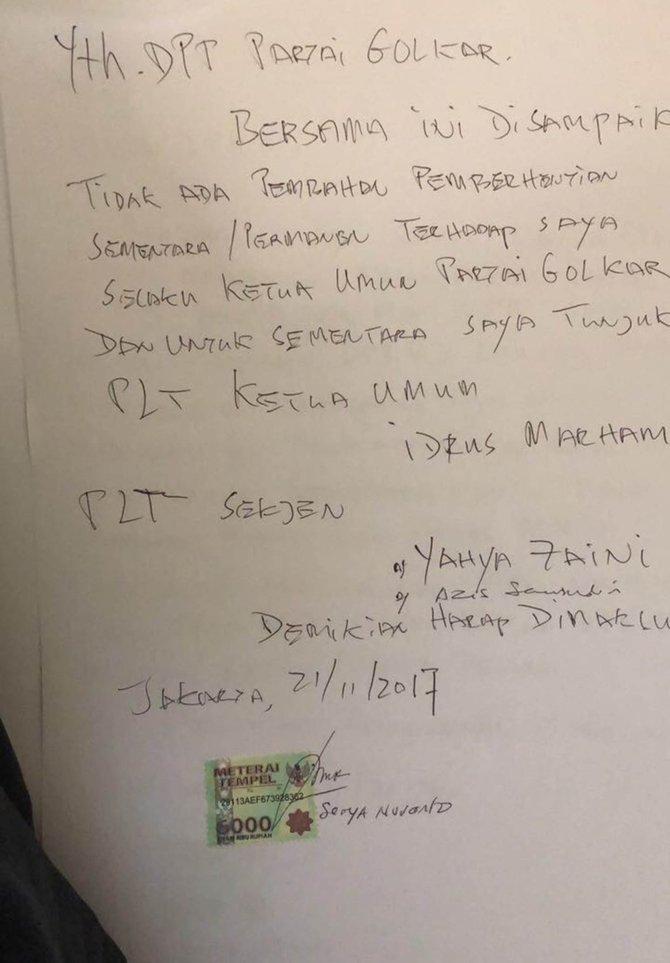 Yth. DPT PARTAI GOLKAR.
BERSAMA INI DISAMPAIK
TIDAK ADA PEMBAHAN PEMBERHENTIAN
SEMENTARA / PERMANEN TERHADAP SAYA
SELAKU KETUA UMUM PARTAI GOLKAR
DAN UNTUK SEMENTARA SAYA TUNJUK
PLT KETUA UMUM
IDRUS MARHAM
PLT SEKJEN
a) YAHYA ZAINI
AZIS
DEMIKIAN HARAP DIMAKLU
JAKARTA, 21/11/2017
METERAI
TEMPEL
6000
ENAM RIBU RUPIAH
SETYA NOVANTO